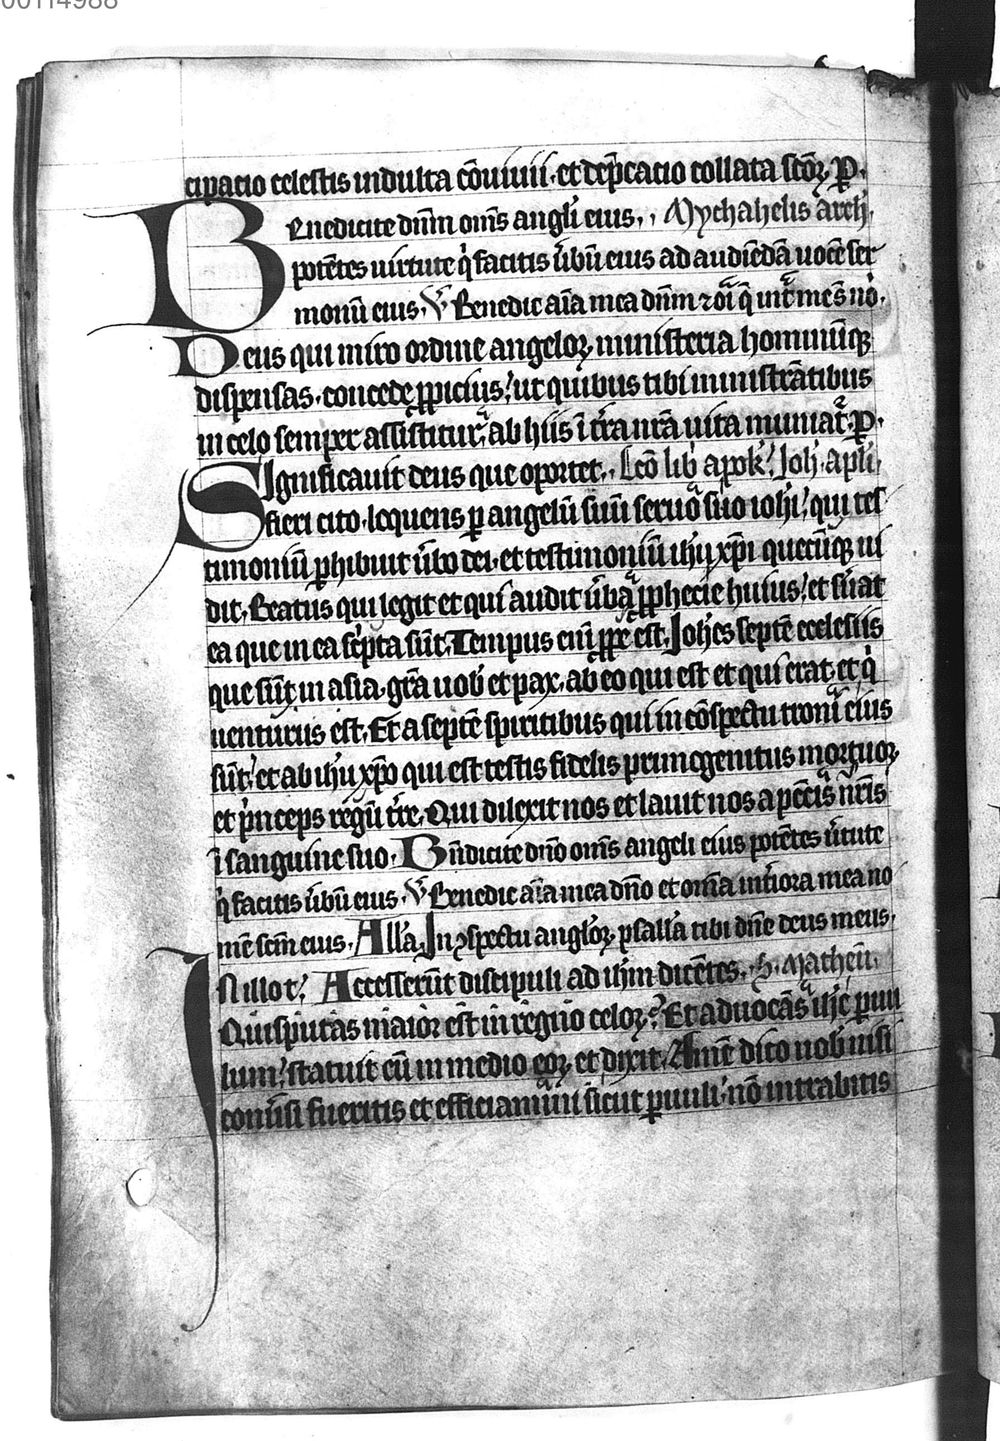 00114988
cipacio celestis indulta cōuiuii. et dep̄catio collata sc̄oꝝ. ꝑ.
Benedicite dn̄m om̄s angl̓i eius. Mychahelis arch̓.
potētes uirtute q̓ facitis ū̓bū eius ad audiēdā uocē ser
monū eius. ℣ Benedic aīa mea dn̄m ⁊ oīa q̄ int̄ mes nō.
Deus qui miro ordine angeloꝝ ministeria hominūqꝫ
dispensas. concede ꝓpicius: ut quibus tibi ministrātibus
in celo semper assistitur: ab hiis ī t̄ra nr̄a uita muniat̄. ꝑ.
Significauit deus que oportet. Lcō lib̓ apok̓. Joh̓. apl̓i.
fieri cito. loquens ꝑ angelū suū seruo suo ioh̓i: qui tes
timoniū ꝑhibuit ū̓bo dei. et testimoniū ih̄u xp̄i quecūqꝫ ui
dit. Beatus qui legit et qui audit ū̓ba ꝓphecie huius: et s̓uat
ea que in ea sc̓pta sūt. Tempus enī ꝓpe est. Joh̓es septē ecclesiis
que sūt in asia. gr̄a uob̓ et pax. ab eo qui est et qui erat. et q̓
uenturus est. Et a septē spiritibus qui in cōspectu troni eius
sūt: et ab ih̄u xp̄o qui est testis fidelis primogenitus mortuoꝝ
et p̓nceps regū t̄re. Qui dilexit nos et lauit nos a pecc̄is nr̄is
ī sanguine suo. Bn̄dicite dn̄o om̄s angeli eius potētes ū̓tute
q̓ facitis ū̓bū eius. ℣ Benedic aīa mea dn̄o et om̄ia int̓iora mea no
mē sc̄m eius. All̓a. In ꝯspectu angl̓oꝝ psall̓a tibi dn̄e deus meus.
In illo t̓. Accesserūt discipuli ad ih̄m dicētes. S. Matheū.
Quis putas maior est in regno celoꝝ? Et aduocās ih̄c ꝑuu
lum: statuit eū in medio eoꝝ. et dixit. Amē dico uob̓ nisi
conū̓si fueritis et efficiamini sicut ꝑuuli: nō intrabitis